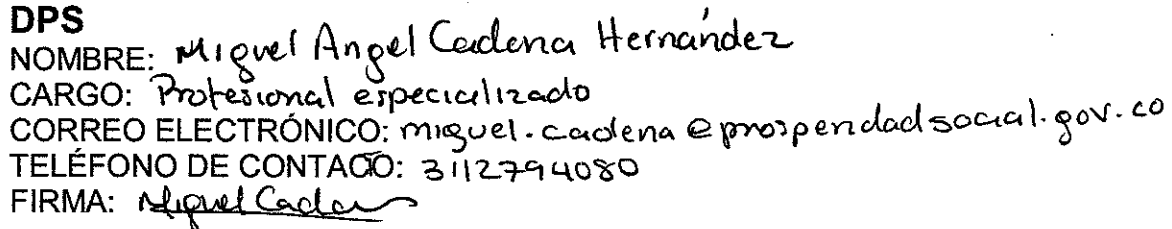 DPS
NOMBRE: Miguel Angel Cadena Hernández
CARGO: Profesional especializado
CORREO ELECTRÓNICO: miguel.cadena@prosperidadsocial.gov.co
TELÉFONO DE CONTACO: 3112794080
FIRMA: Miguel Cadena